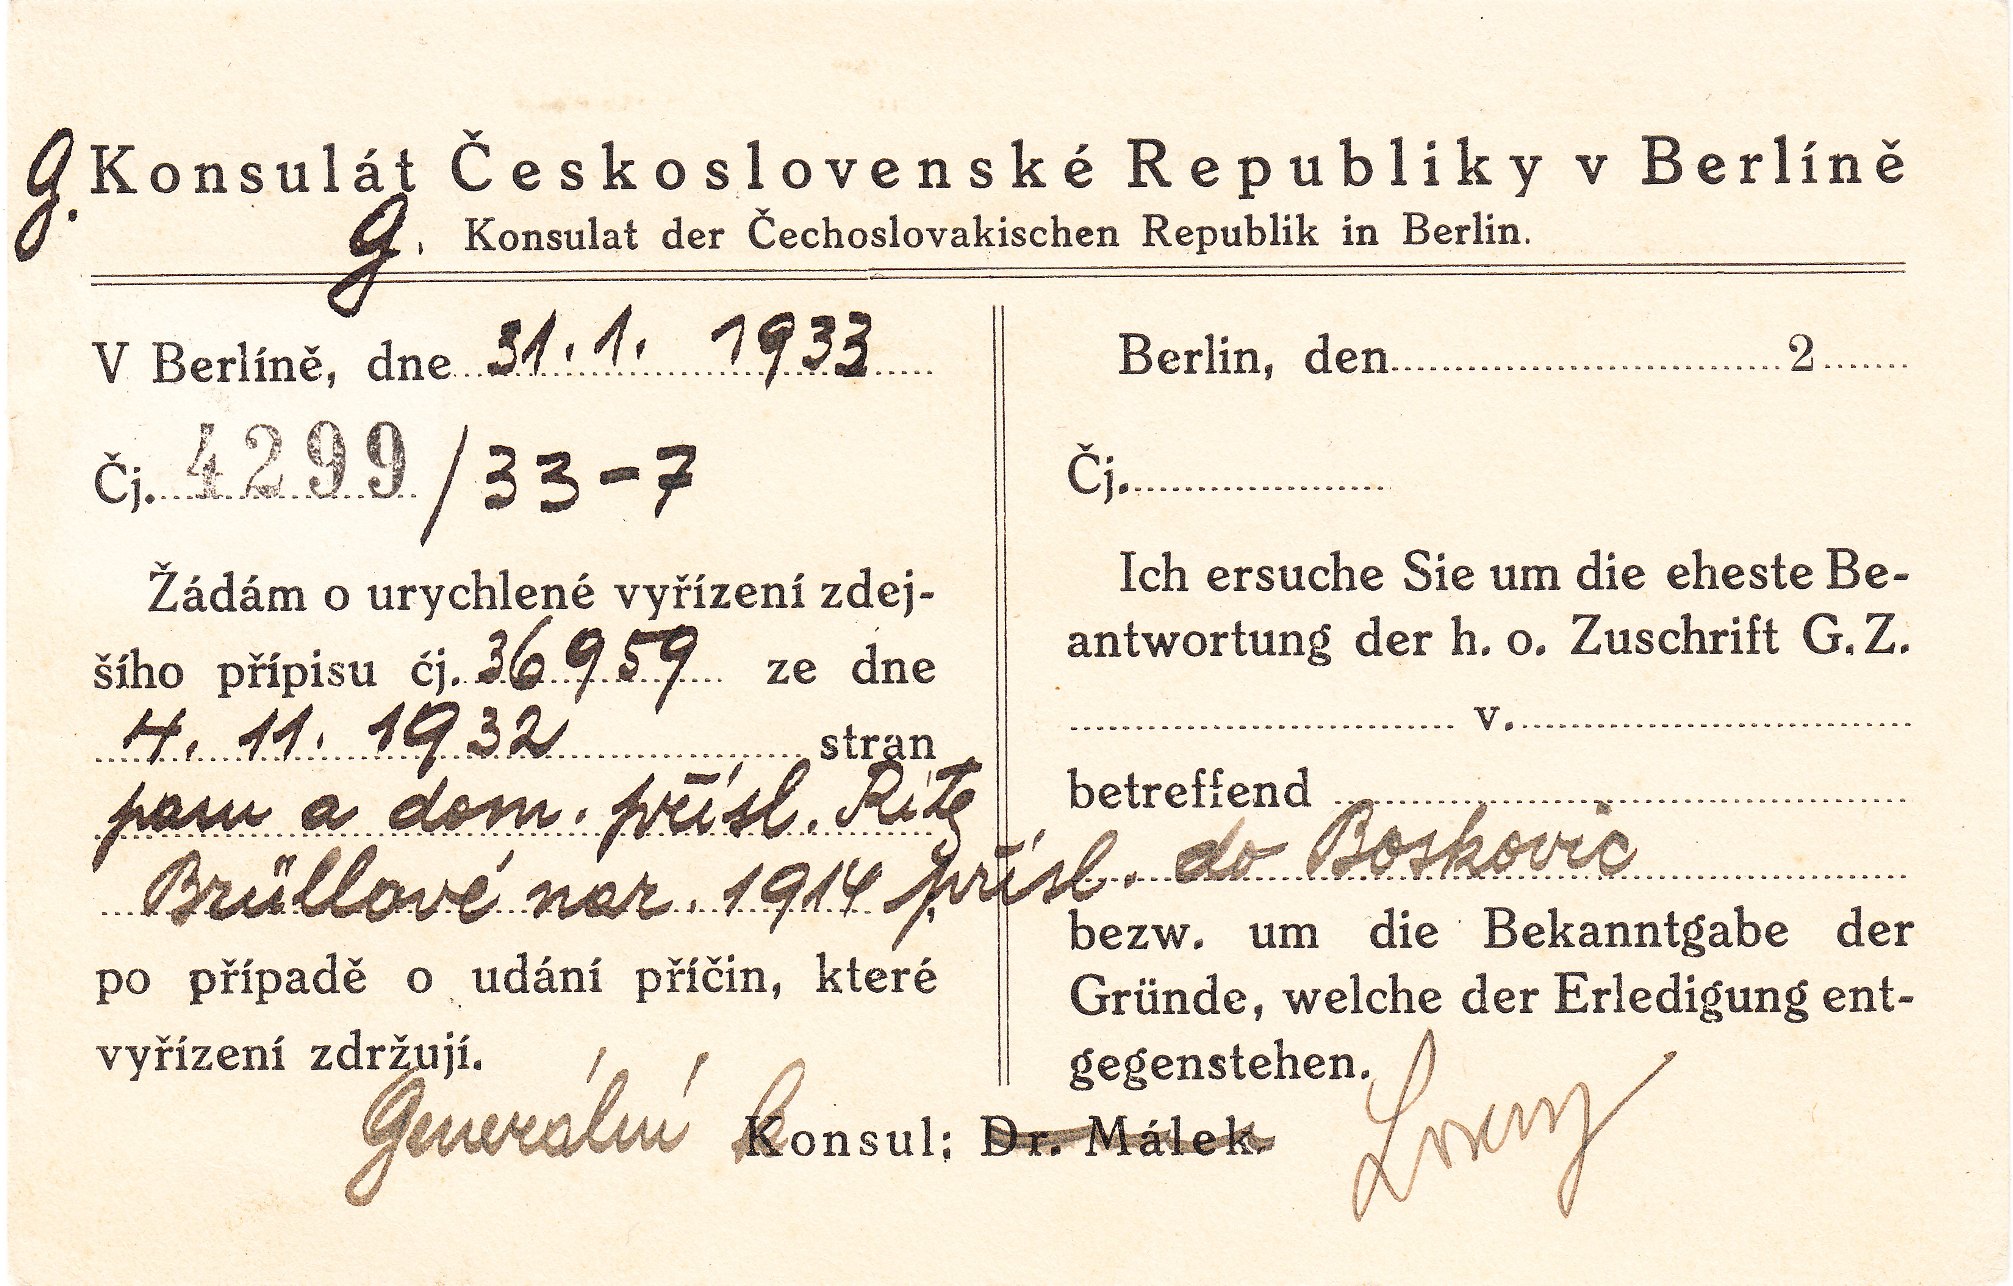 g. Konsulát Československé Republiky v Berlíně
g. Konsulat der Čechoslovakischen Republik in Berlin.
V Berlíně, dne 31. 1. 1933
Čj. 4299/33-7
Žádám o urychlené vyřízení zdej-
šího přípisu čj. 36959 ze dne
4. 11. 1932 stran
pasu a dom. přísl. Rity
Brüllové nar. 1914, přísl. do Boskovic
po případě o udání příčin, které
vyřízení zdržují.
Berlin, den 2
Čj.
Ich ersuche Sie um die eheste Be-
antwortung der h. o. Zuschrift G. Z.
v.
betreffend
bezw. um die Bekanntgabe der
Gründe, welche der Erledigung ent-
gegenstehen.
Generální Konsul: Dr. Málek.